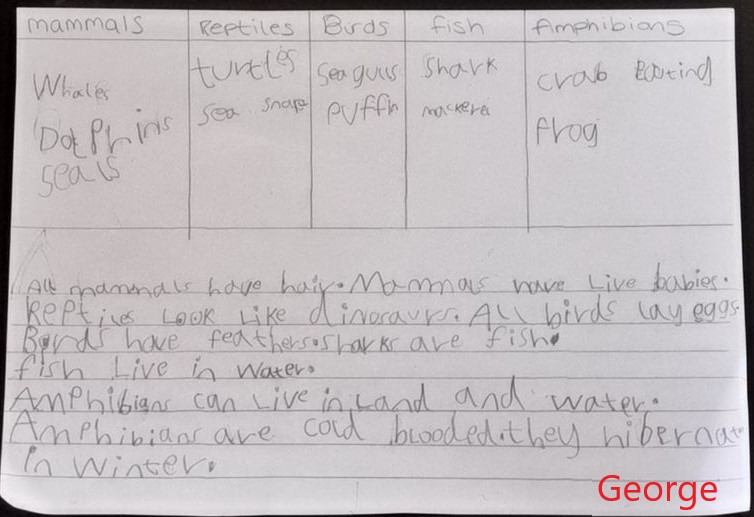 mammals Reptiles Birds fish Amphibians
Whales turtles seagulls shark crab eating
Dolphins sea snake puffin mackerel frog
seals
All mammals have hair. Mammals have live babies.
Reptiles Look Like dinosaurs. All birds lay eggs.
Birds have feathers. sharks are fish.
fish Live in water.
Amphibians can Live in Land and water.
Amphibians are cold blooded. they hibernate
in winter.
George